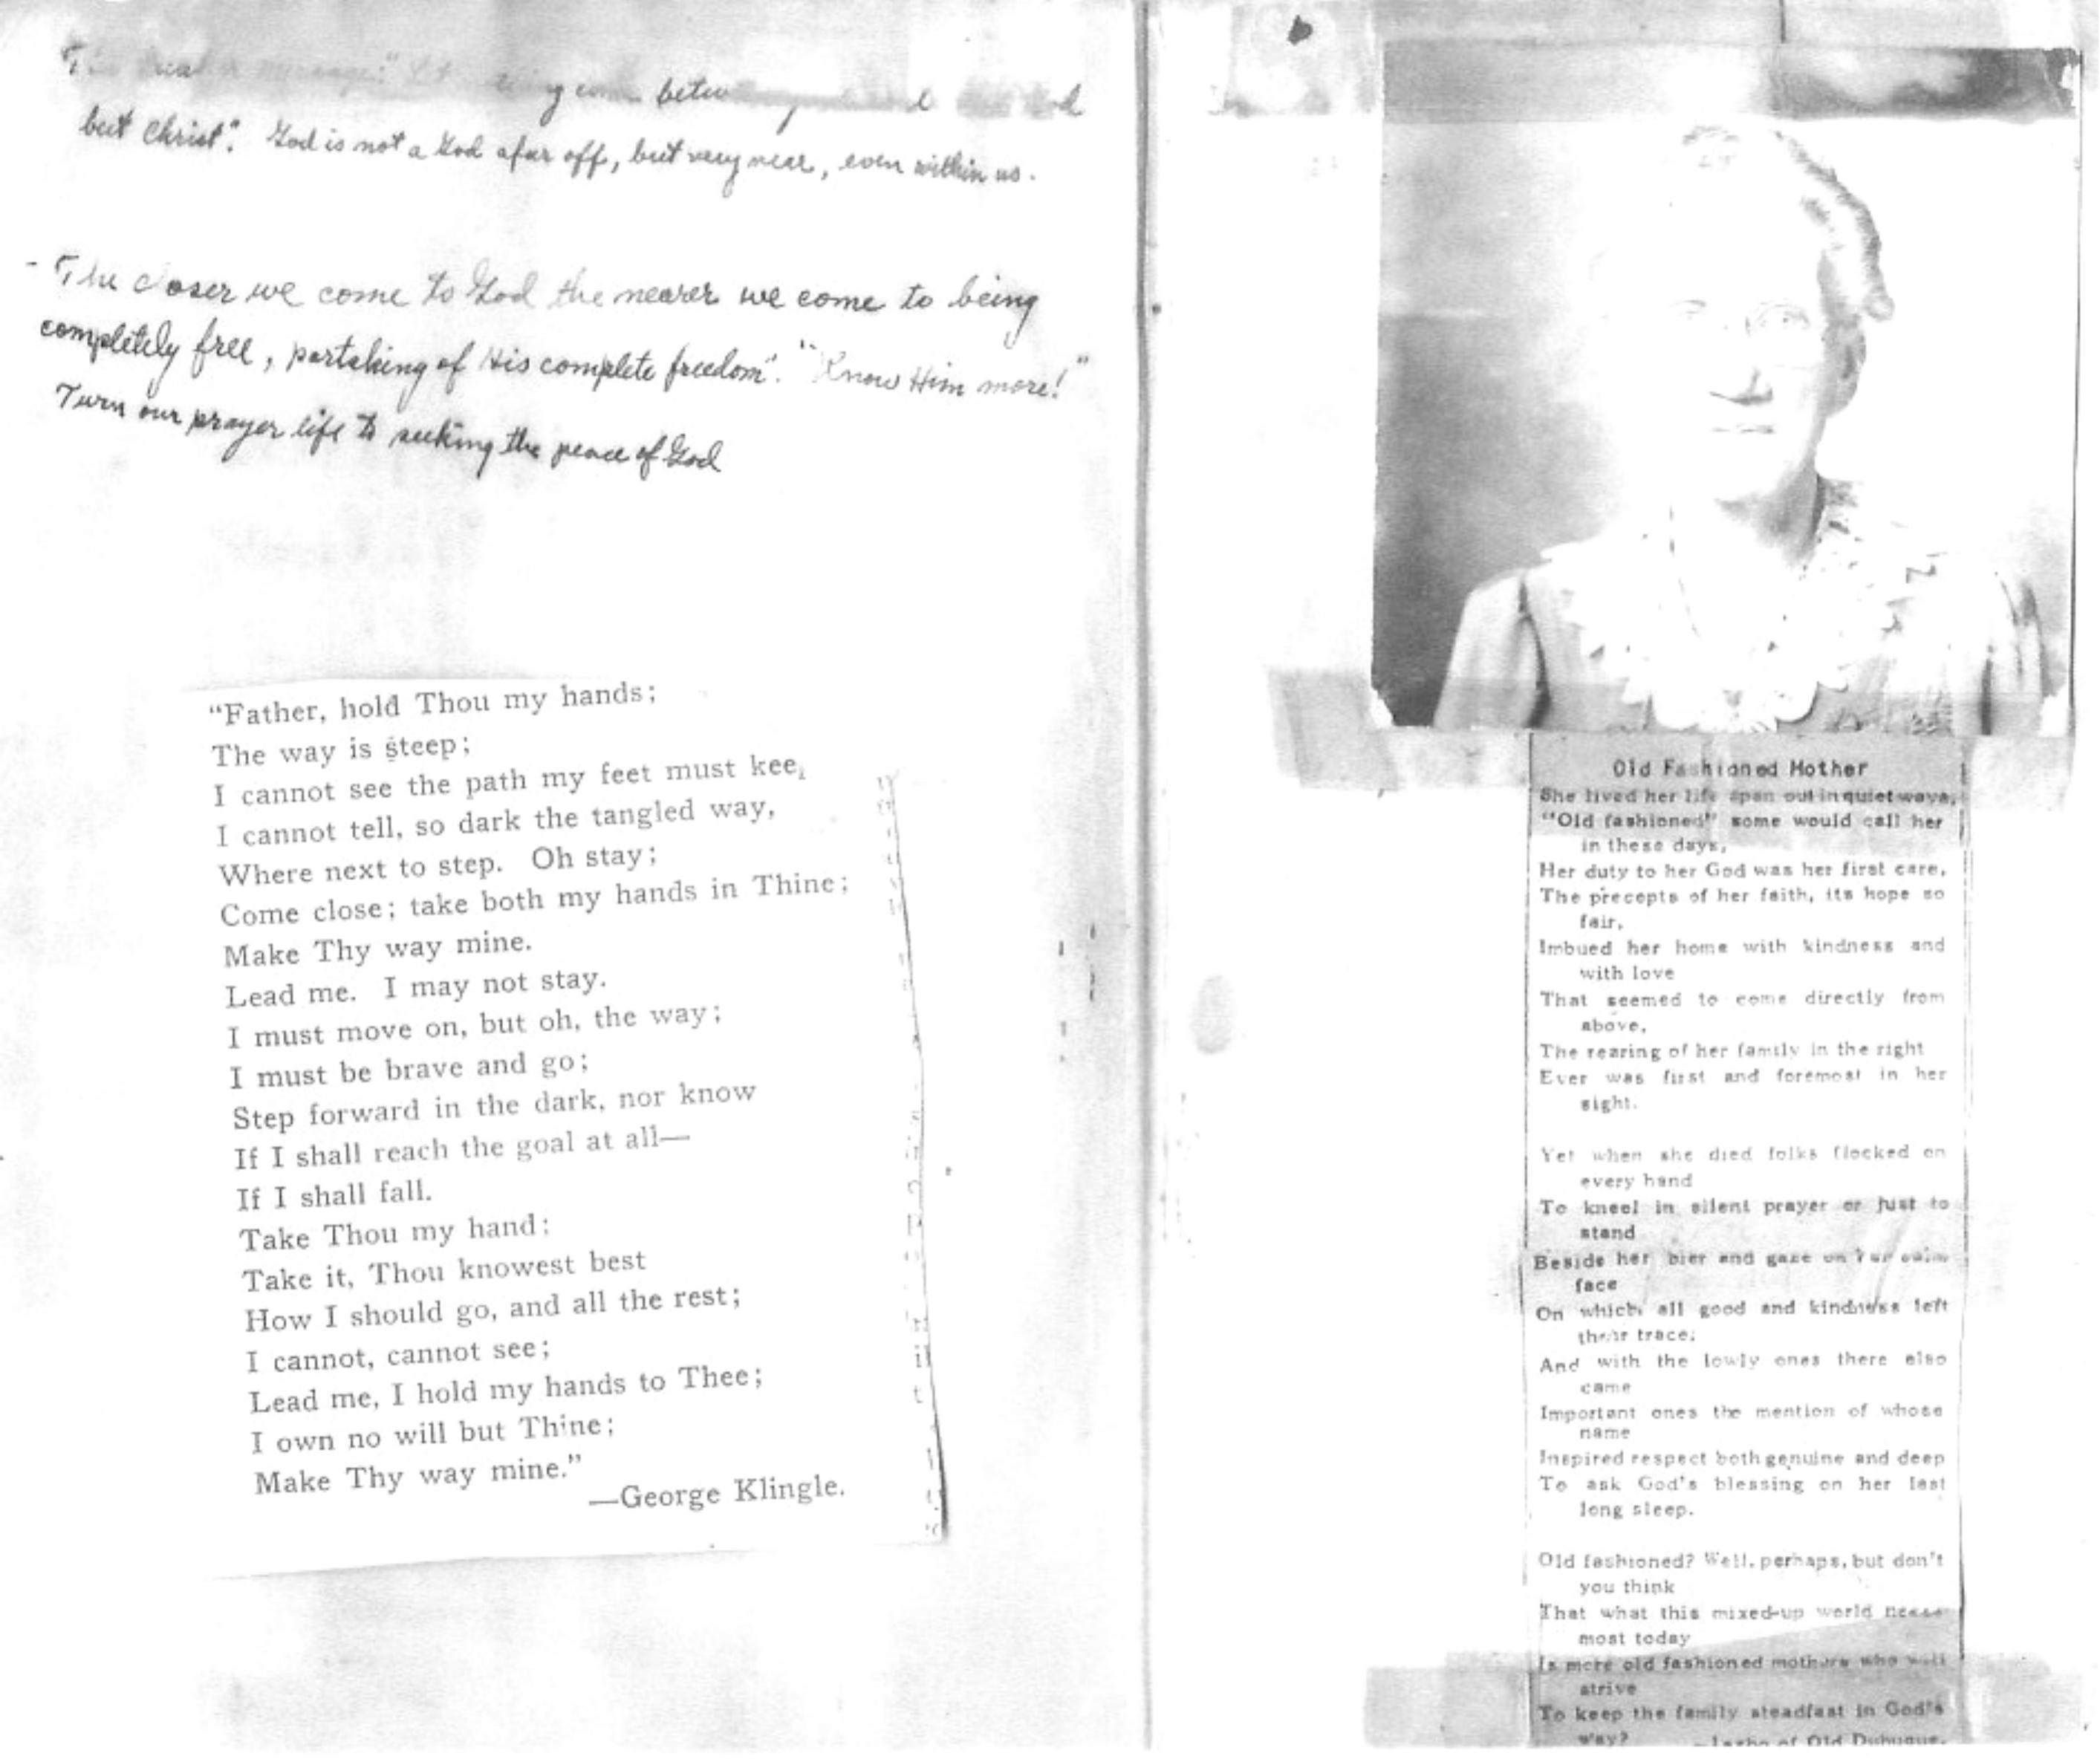 but Christ". God is not a God afar off, but very near, even within us.
- The closer we come to God the nearer we come to being
completely free, partaking of His complete freedom". "Know Him more!"
Turn our prayer life to seeking the peace of God
"Father, hold Thou my hands;
The way is steep;
I cannot see the path my feet must
I cannot tell, so dark the tangled way,
Where next to step. Oh stay;
Come close; take both my hands in Thine;
Make Thy way mine.
Lead me. I may not stay.
I must move on, but oh, the way;
I must be brave and go;
Step forward in the dark, nor know
If I shall reach the goal at all—
If I shall fall.
Take Thou my hand;
Take it, Thou knowest best
How I should go, and all the rest;
I cannot, cannot see;
Lead me, I hold my hands to Thee;
I own no will but Thine;
Make Thy way mine."
—George Klingle.
Old Fashioned Mother
She lived her life span out in quiet ways,
"Old fashioned" some would call her
in these days,
Her duty to her God was her first care,
The precepts of her faith, its hope so
fair,
Imbued her home with kindness and
with love
That seemed to come directly from
above,
The rearing of her family in the right
Ever was first and foremost in her
sight.
Yet when she died folks flocked on
every hand
To kneel in silent prayer or just to
stand
Beside her bier and gaze on her calm
face
On which all good and kindness left
their trace;
And with the lowly ones there also
came
Important ones the mention of whose
name
Inspired respect both genuine and deep
To ask God's blessing on her last
long sleep.
Old fashioned? Well, perhaps, but don't
you think
That what this mixed-up world needs
most today
Is more old fashioned mothers who will
strive
To keep the family steadfast in God's
way? of Old Dubuque.